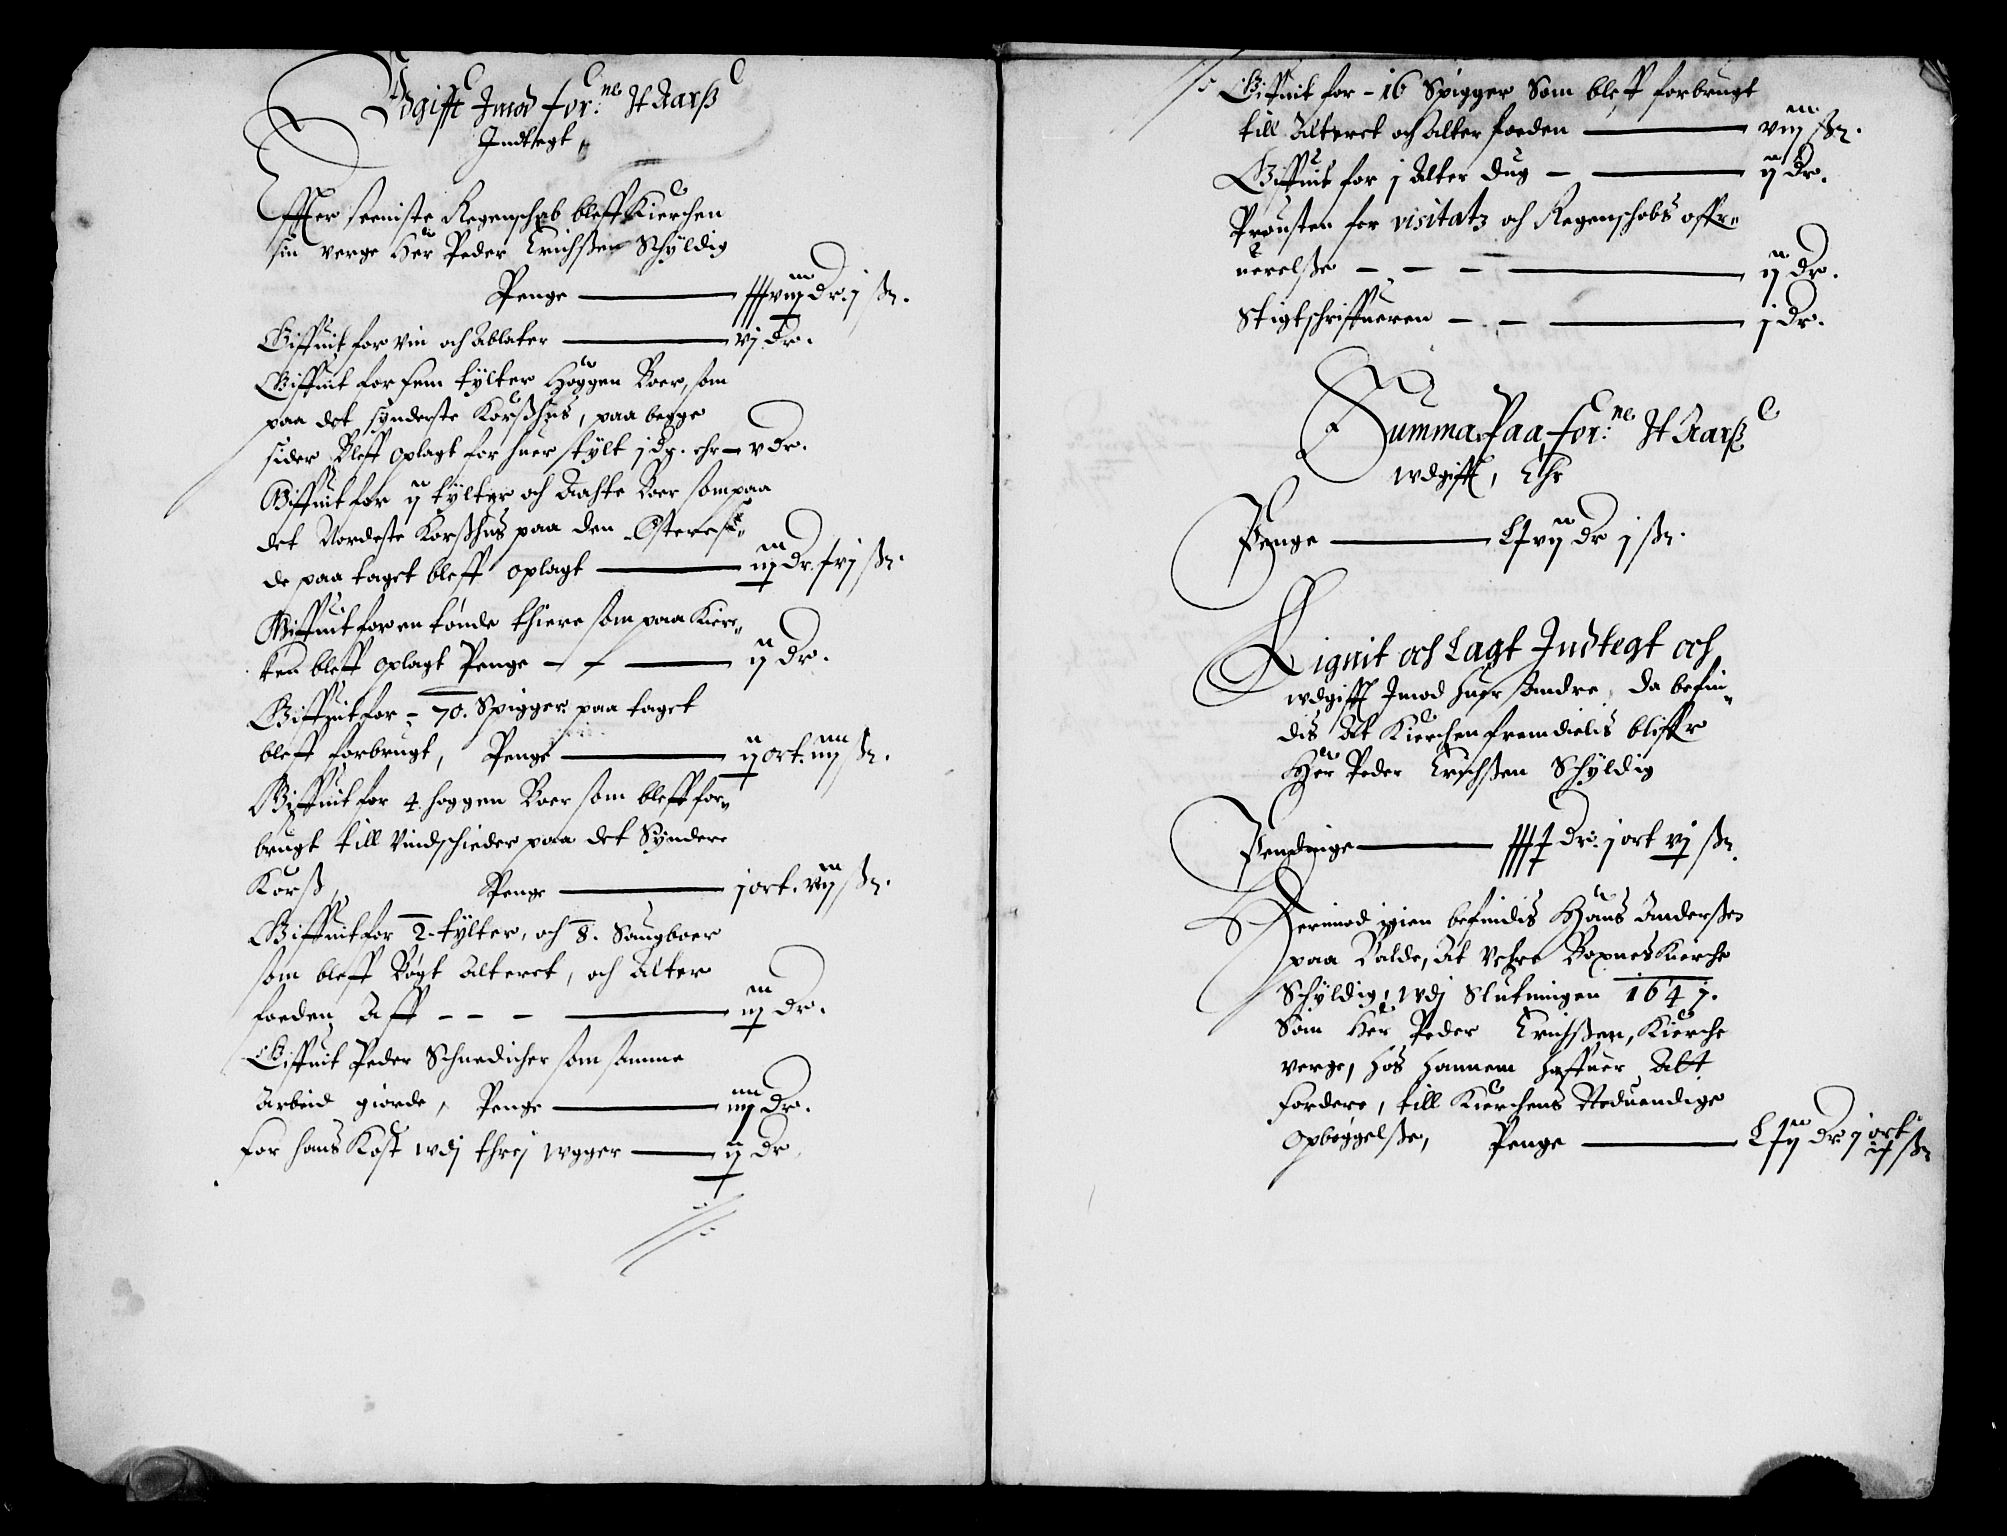 Vdgifft Imod for:ne H Aarß
Indtegt,
Effter seeniste Regenschab bleff Kierchen
sin verge Her Peder Erichßen Schÿldig
Penge — dr. j ß.
Giffuit for vin och Ablater — vj dr.
Giffuit for fem tÿlter Høggen Boer, som
paa det synderste Korßhus, paa begge
sider Bleff oplagt for huer tÿlt j dr. ehr — v dr.
Giffuit for ij tÿlter och Aatte Boer som paa
det Nordeste Korßhus paa den Østeresi„
de paa taget bleff oplagt — iij dr. ß.
Giffuit for en tønde thiere som paa Kier„
ken bleff oplagt Penge — — ij dr.
Giffuit for – 70. Spigger paa taget
bleff forbrugt, Penge — ij ort. iiij ß.
Giffuit for 4 hoggen Boer som bleff for„
brugt till Vindschieder paa det Sÿndere
Korß, Penge — j ort. viij ß.
Giffuit for 2 tÿlter, och 8. Saugboer
som bleff Bøgt Alteret, och Alter
foeden Aff – – – iij dr.
Giffuit Peder Schnedicher som samme
Arbeid giorde, Penge — iiij dr.
for hans Kost wdj threj wgger — ij dr.
Giffuit for – 16 Spigger Som bleff forbrugt
till Alteret och Alter foeden — viij ß.
Giffuit for j Alter dug — ij dr.
Prousten for visitatz och Regenschabs offr„
uerelße – – – ij dr.
Stigtschriffueren – – — j dr.
Summa Paa for:ne H Aarß
wdgifft, Ehr
Penge — dr j ß.
Lignit och Lagt Indtegt och
wdgifft Imod huer Andre, da befin„
dis At Kierchen fremdielis bliffr
Her Peder Erichßen Schÿldig
Pendinge — dr. j ort vj ß.
Herimod igien befindis Hans Anderßen
paa Valde, At Vehre Boxnes Kierche
Schÿldig, wdj Slutningen 1647.
Som Her Peder Erichßen, Kierche
verge, hos hannem haffuer Att
fordere, till Kierchens Nøduendige
opbøggelße, Penge — dr j ort ß.